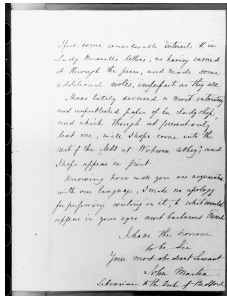 feel some considerable interest & in
Lady Russells letters, as having carried
it through the press, and made some
additional notes, imperfect as they are
I have lately secured a most interesting
and unpublished paper of her Ladyship,
and which though at present only
lent me, will I hope come into the
rest of the MSS at Woburn Abbey; and
I hope appear in print
Knowing how well you are acquainted
with our language, I make no apology
for preferring writing in it, to what would
appear in your eyes most barbarous French
I have the honour
to be Sir
Your most obedient Servant
John Martin
Librarian to the Duke of Bedford